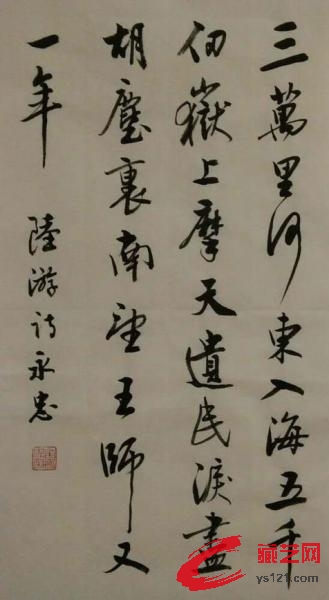 三萬里河東入海五千
仞嶽上摩天遺民淚盡
胡塵裏南望王師又
一年
陸游詩永忠
藏艺网
ys121.com